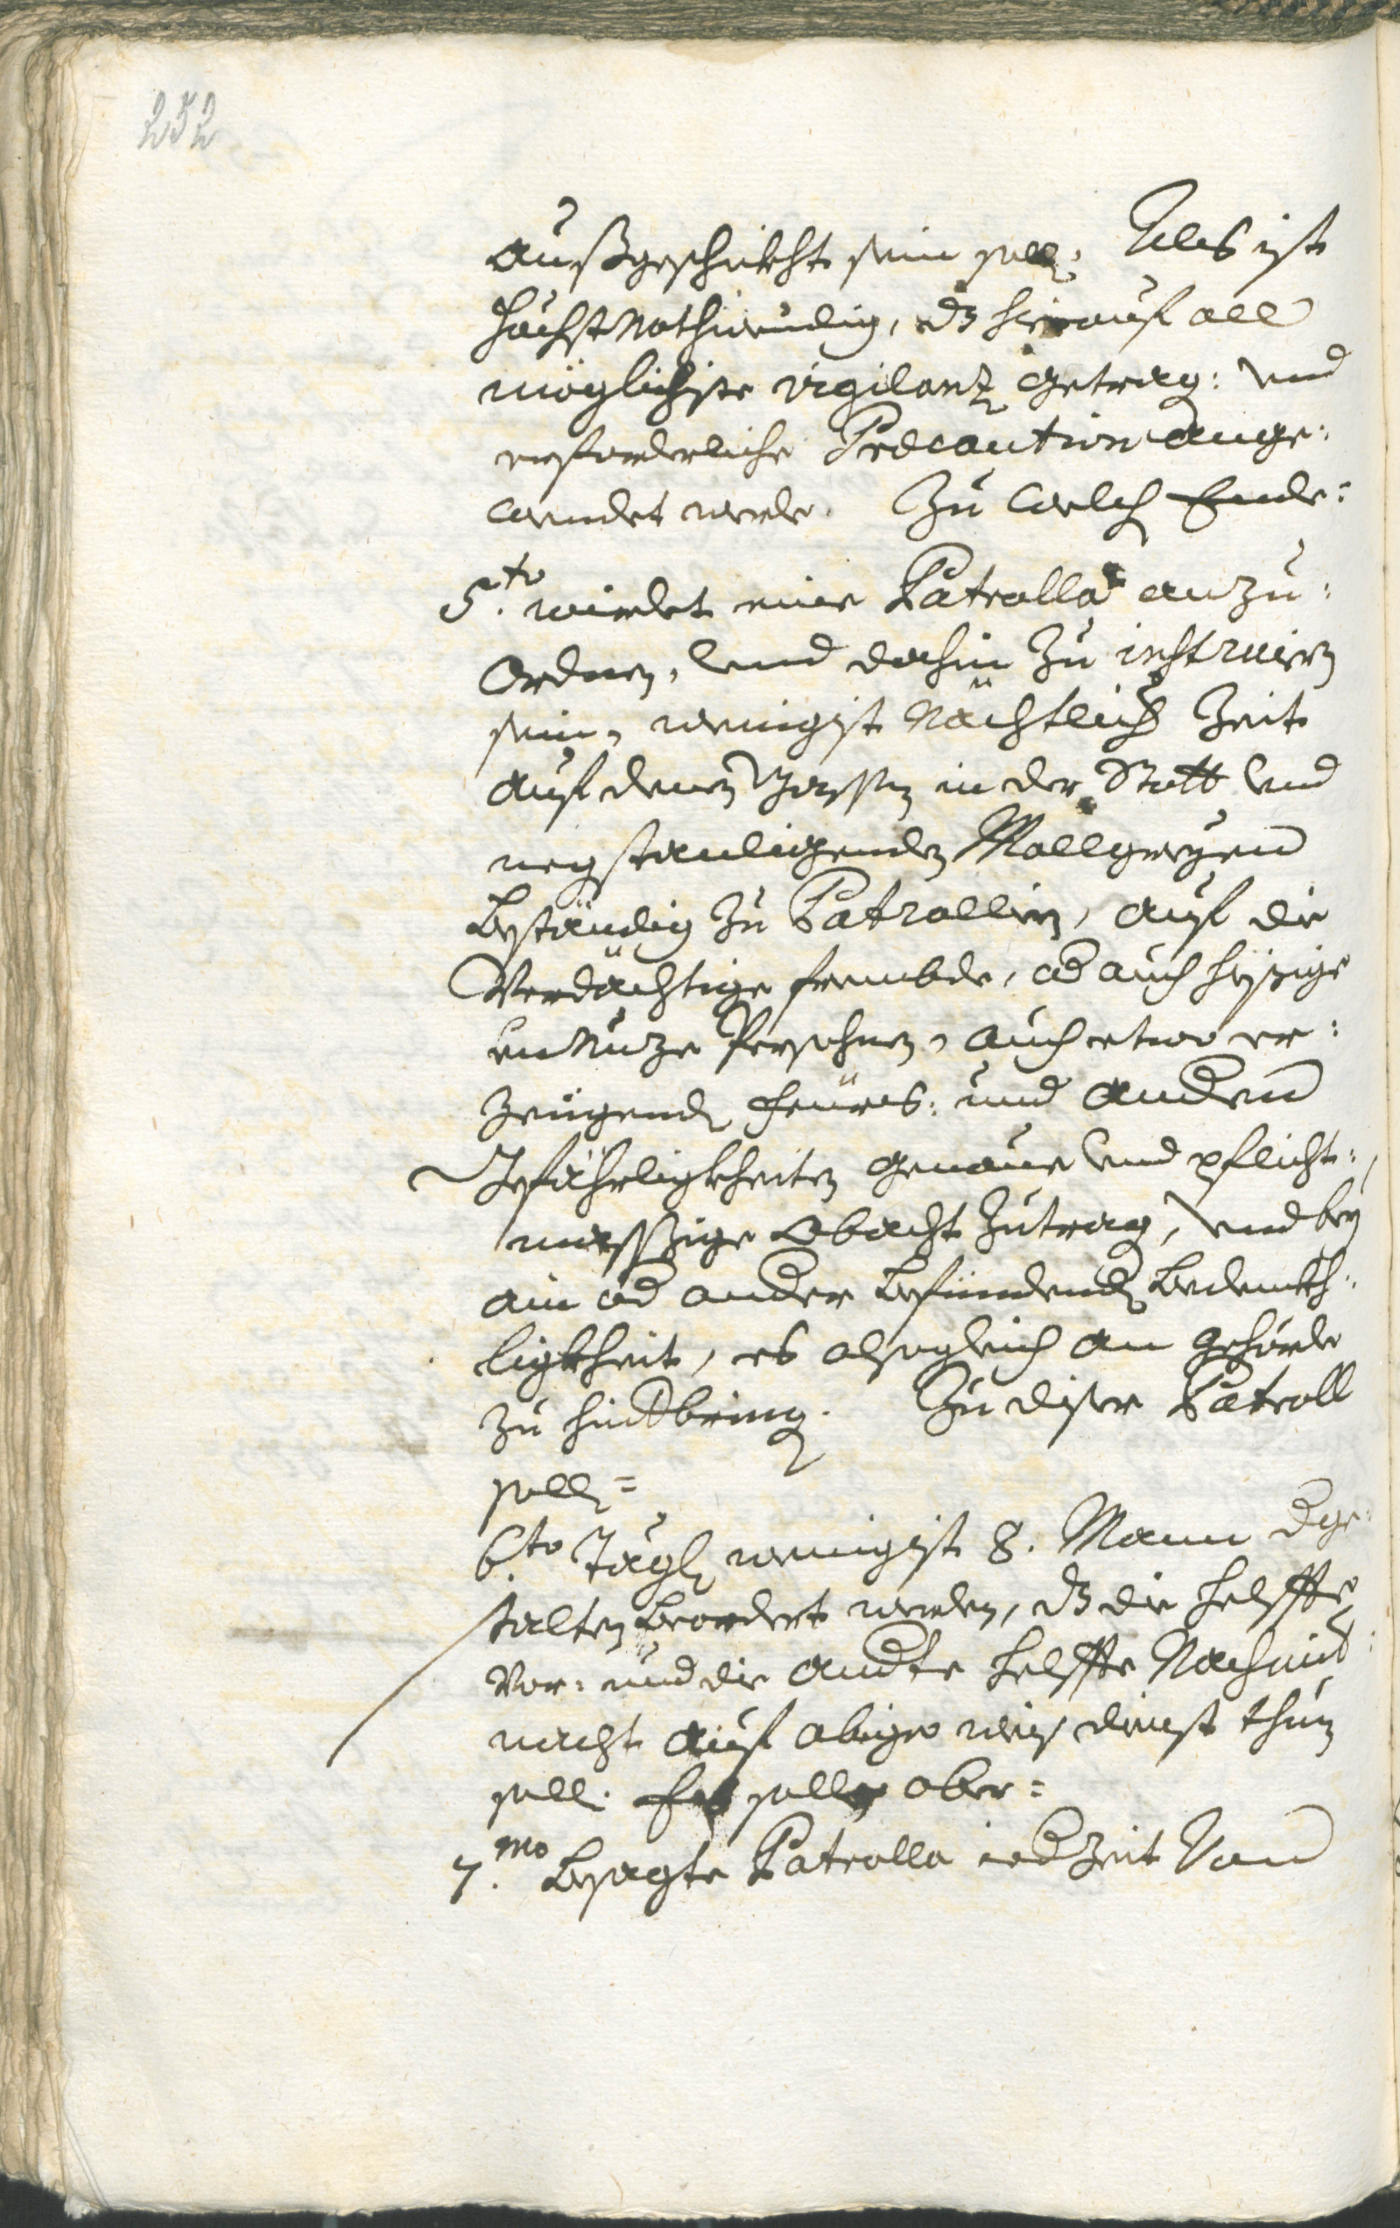 252
außgeschikht sein soll. Alß ist
höchst Nothwendig, dz hierauf all
möglichiste vigilanz getrag: und
erforderliche Precaution ange:
wendet werde. Zu welch Ende:
5.to wirdet eine Patrolla anzu:
Ordnen, und dahin zu instruiern
sein, wenigist Nächtlich Zeit
auf denen Gassen in der Statt und
negstanligenden Mallgreyen
Beständig zu Patrollirn, auf die
Verdächtige frembde, od auch hissige
unNuze Persohnen, auch etwo er:
zeügende feürs: und andern
Gefährligkheiten genaue und pflicht:
mässige Obacht zutrag, und bey
ain od ander befindende bedenkh:
ligkheit, es alsogleich an gehörde
zu hindbring. Zu diser Patroll
soll=
6.to Tägl wenigist 8. Mann dge:
stalten beordert werden, dz die helffte
Vor: und die andte helffte Nachmit:
nacht auf obige weis dienst thun
soll. Es solle aber=
7.mo Besagte Patrolla iedzeit Von